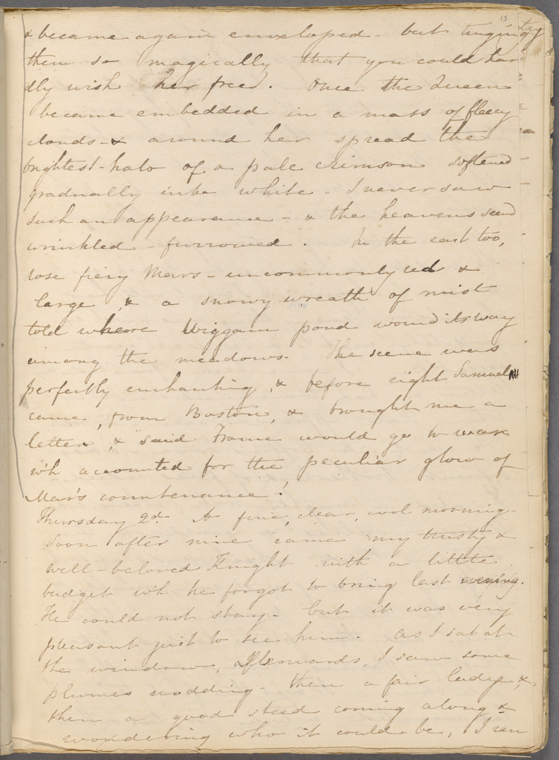 13
& became again enveloped - but tinging
them so magically that you could har
dly wish her free. Once the Queen
became embedded in a mass of fleecy
clouds - & around her spread the
brightest halo of a pale crimson softened
gradually into white. I never saw
such an appearance - & the heavens seed
wrinkled - furrowed. In the east too,
rose fiery Mars - uncommonly red &
large, & a snowy wreath of mist
told where Wiggam pond wound its way
among the meadows. The scene was
perfectly enchanting, & before eight Samuel
came, from Boston, & brought me a
letter, & said France would go to war
wh accounted for the peculiar glow of
Mars's countenance.
Thursday 2d. A fine, clear, cool morning.
Soon after nine came my trusty &
well-beloved Knight with a little
budget wh he forgot to bring last evening.
He could not stay - but it was very
pleasant just to see him. As I sat at
the window, afterwards, I saw some
plumes nodding - then a fair lady &,
then a good steed coming along &
wondering who it could be, I ran